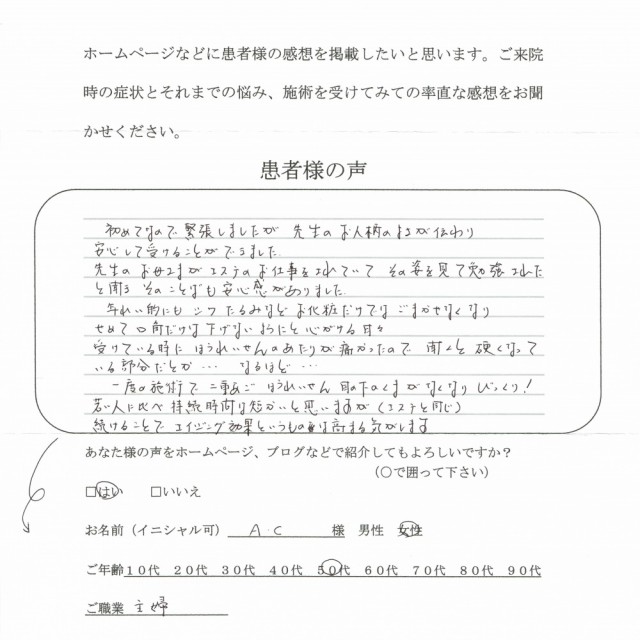 ホームページなどに患者様の感想を掲載したいと思います。ご来院
時の症状とそれまでの悩み、施術を受けてみての率直な感想をお聞
かせください。
患者様の声
初めてなので緊張しましたが 先生のお人柄のよさが伝わり
安心して受けることができました
先生のお母さまがエステのお仕事をされていて その姿を見て勉強された
と聞き そのことばも安心感がありました
年れい的にもシワ たるみなどお化粧だけではごまかせなくなり
せめて口角だけは下げないようにと心がける日々
受けている時に ほうれいせんのあたりが痛かったので 聞くと 硬くなって
いる部分だとか… なるほど…
一度の施術で ほうれいせん 目の下のくまがなくなりびっくり!
若い人に比べ持続時間は短かいと思いますが(エステと同じ)
続けることでエイジング効果というものは高まる気がします
あなた様の声をホームページ、ブログなどで紹介してもよろしいですか?
(○で囲って下さい)
□はい □いいえ
お名前(イニシャル可) A・C 様 男性 女性
ご年齢 10代 20代 30代 40代 50代 60代 70代 80代 90代
ご職業 主婦